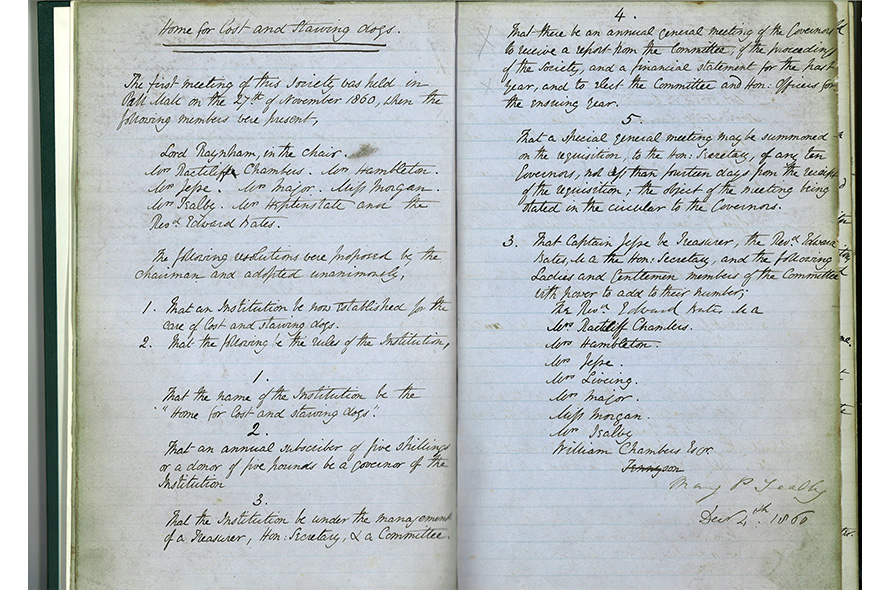 Home for Lost and Starving dogs.
The first meeting of this Society was held in
Pall Mall on the 27th of November 1860, when the
following members were present,
Lord Raynham, in the chair.
Mrs Ratcliffe Chambers. Mrs Hambleton.
Mrs Jesse. Mrs Major. Miss Morgan.
Mrs Tealby. Mr Heptinstale and the
Revd. Edward Bates.
The following resolutions were proposed by the
Chairman and adopted unanimously,
1. That an Institution be now established for the
care of Lost and starving dogs.
2. That the following be the rules of the Institution,
1.
That the name of the Institution be the
"Home for Lost and starving dogs".
2.
That an annual subscriber of five shillings
or a donor of five pounds be a governor of the
Institution
3.
That the Institution be under the management
of a Treasurer, Hon: Secretary, & a Committee.
4.
That there be an annual general meeting of the Governors
to receive a report from the Committee, of the proceedings
of the Society, and a financial statement for the past
year, and to elect the Committee and Hon: Officers for
the ensuing year.
5.
That a special general meeting may be summoned
on the requisition, to the Hon: Secretary, of any ten
Governors, not less than fourteen days from the receipt
of the requisition; the object of the meeting being
stated in the circular to the Governors.
3. That Captain Jesse be Treasurer, the Revd. Edward
Bates, M A the Hon: Secretary, and the following
Ladies and Gentlemen members of the Committee
with power to add to their number;
The Revd Edward Bates M A
Mrs Ratcliff Chambers.
Mrs Hambleton.
Mrs Jesse.
Mrs Liveing.
Mrs Major.
Miss Morgan.
Mrs Tealby
William Chambers Esqr
Tennyson
Mary P Tealby
Decr 4th. 1860